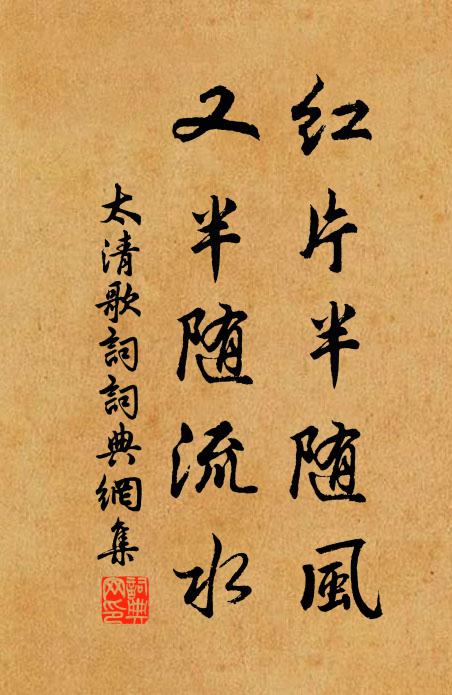 红片半随風
又半随流水
太清歌詞詞典網集
詞典
网印